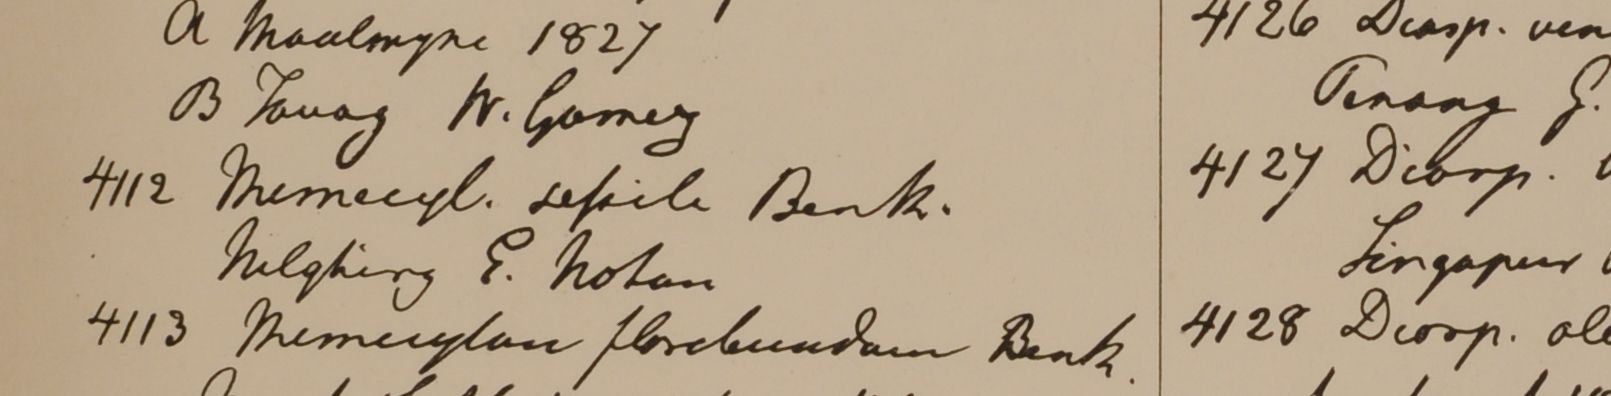 A Moalmyne 1827
B Tavoy W. Gomez
4112 Memecyl. sessile Benth.
Nilghiry G. Noton
4113 Memecylon floribundum Benth.
4126 Diosp. ven
Penang G.
4127 Diosp.
Singapur
4128 Diosp. ole